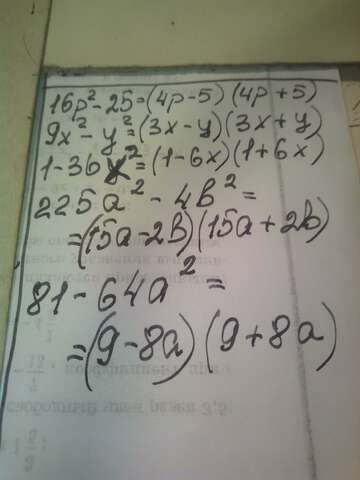 16p²-25=(4p-5)(4p+5)
9x²-y²=(3x-y)(3x+y)
1-36x²=(1-6x)(1+6x)
225a²-4b²=
=(15a-2b)(15a+2b)
81-64a²=
=(9-8a)(9+8a)